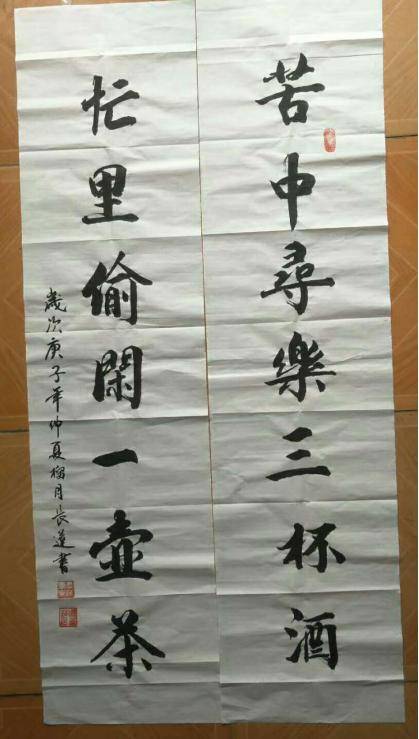 苦中尋樂三杯酒
忙里偷閑一壺茶
歲次庚子年仲夏榴月長蓮書